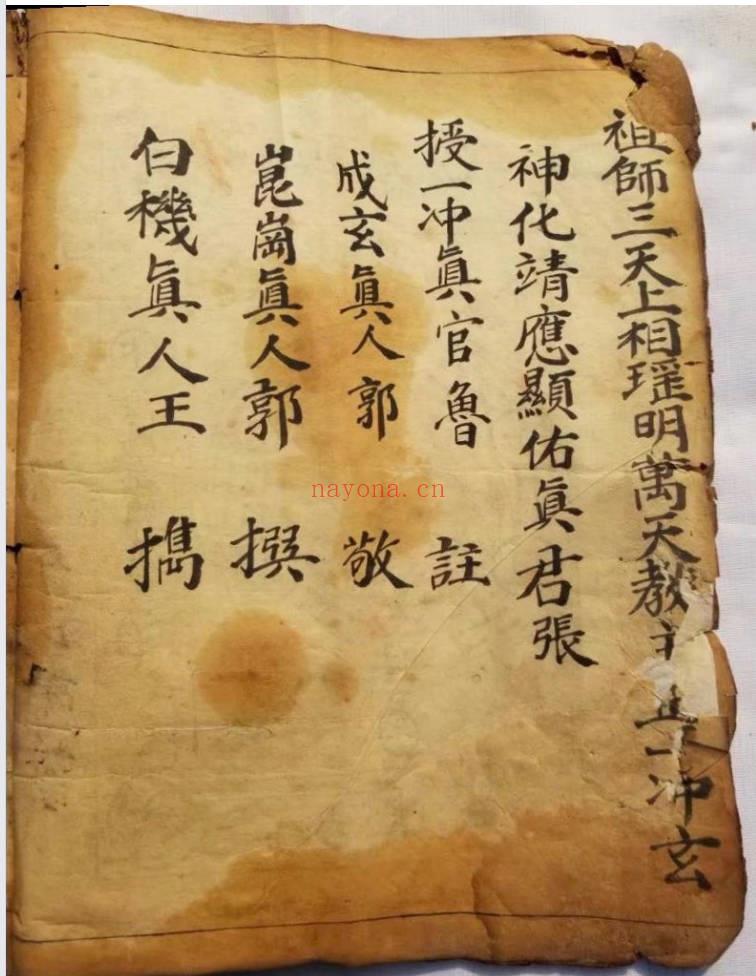 祖師三天上相瑶明萬天教主正一冲玄
神化靖應顯佑眞君張
授一冲眞官魯 註
成玄眞人郭 敬
崑崗眞人郭 撰
白機眞人王 擕
nayona.cn